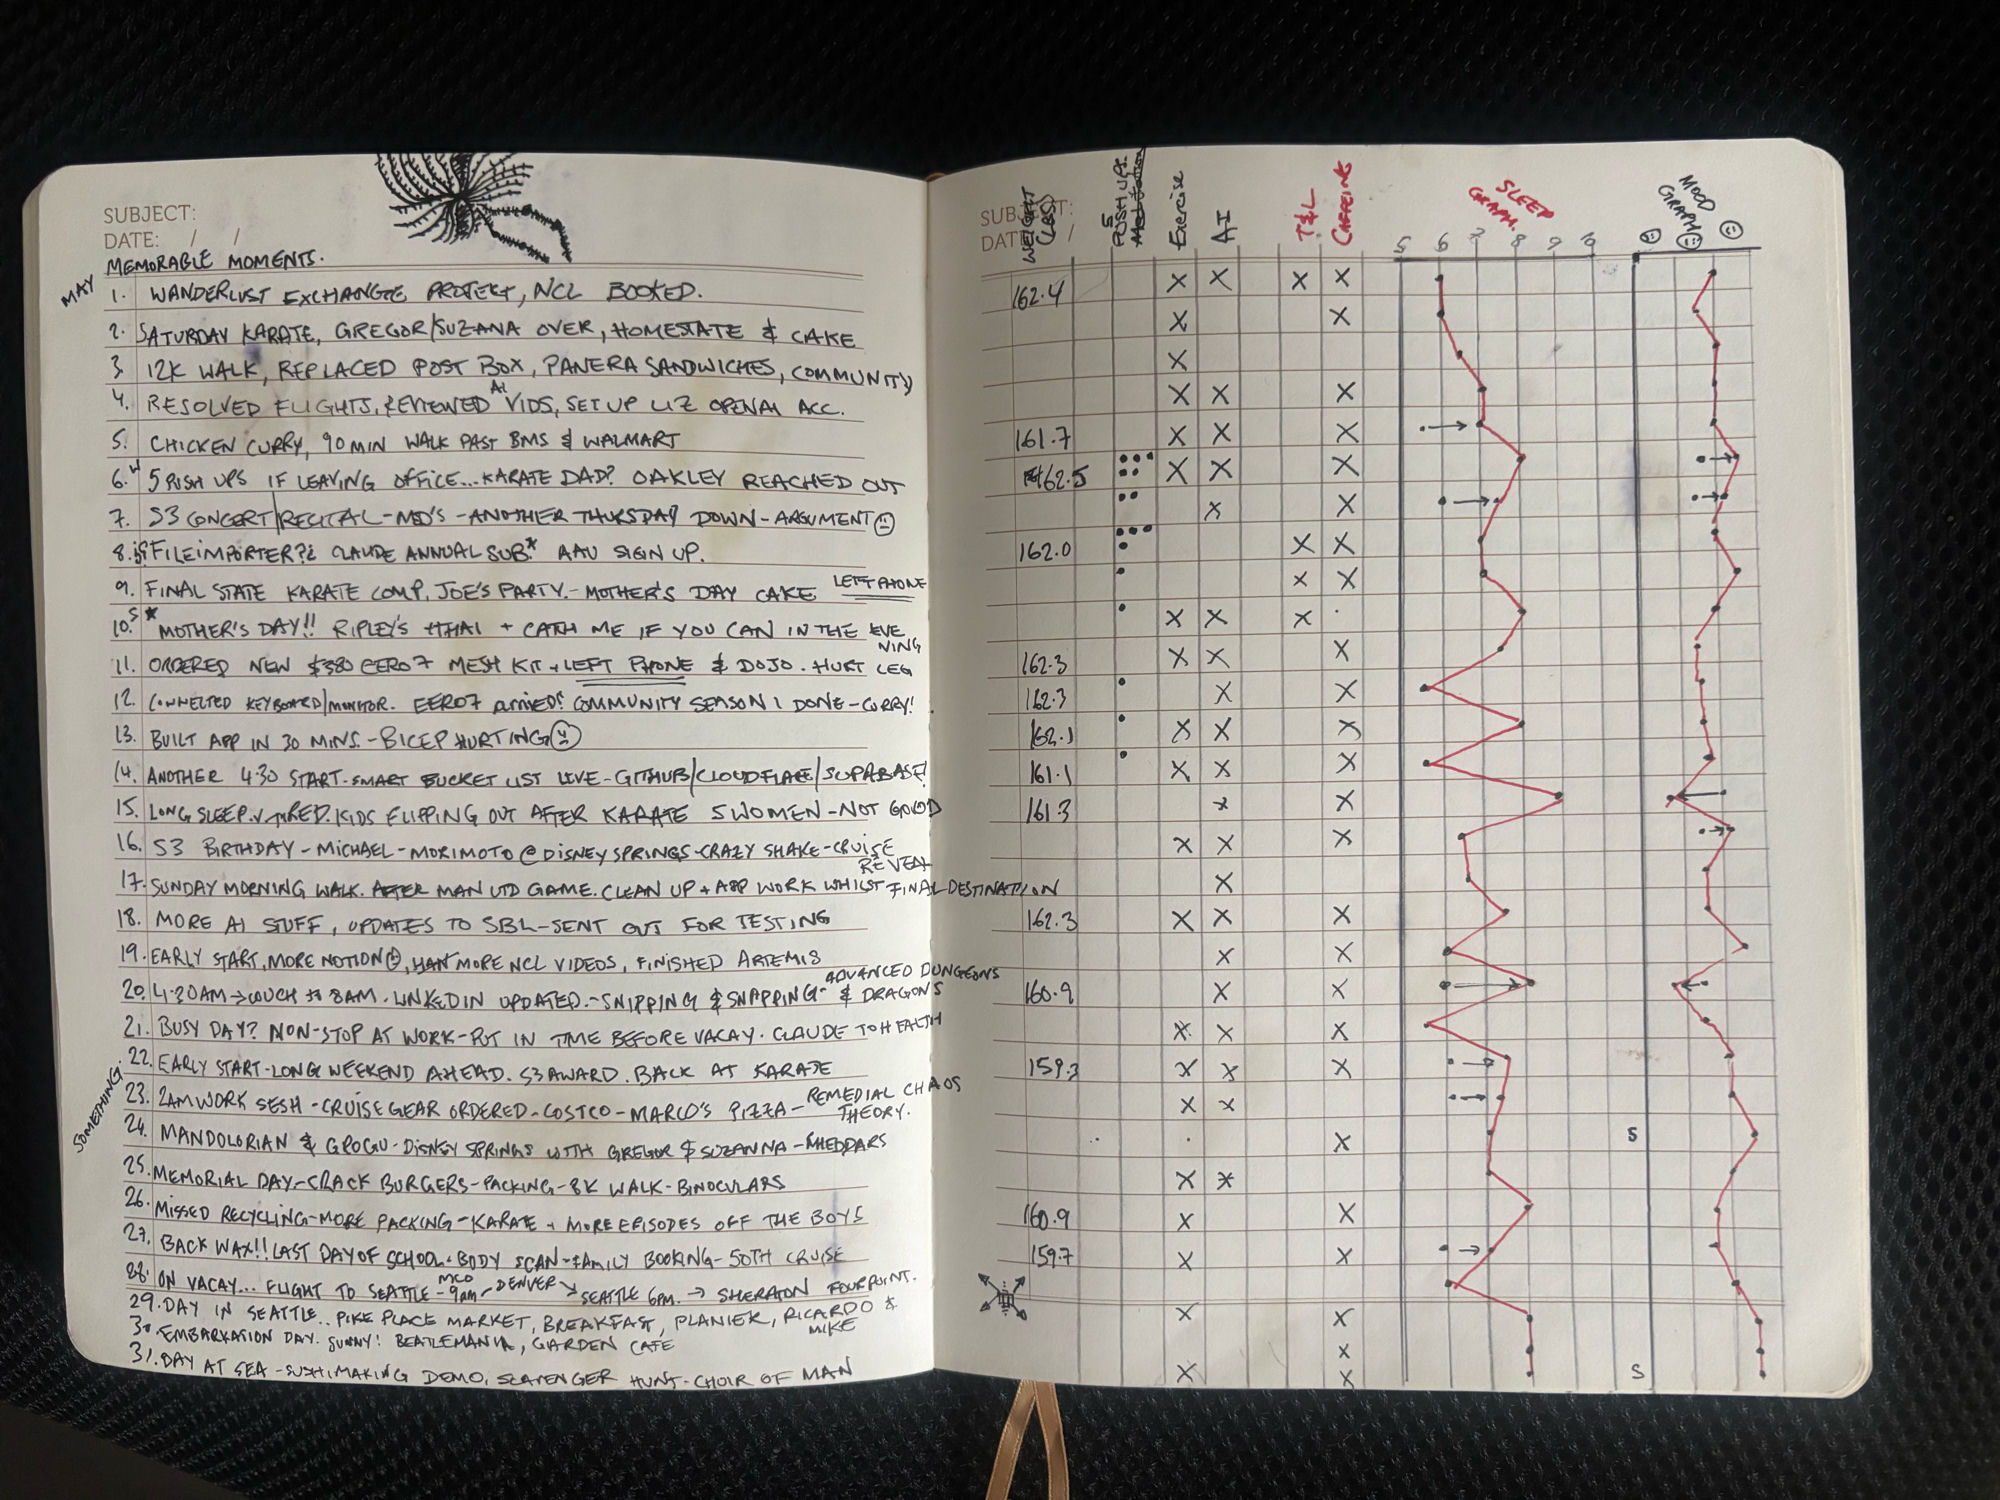 SUBJECT:
DATE: / /
MEMORABLE MOMENTS.
MAY
1. WANDERLUST EXCHANGE PROJECT, NCL BOOKED.
2. SATURDAY KARATE, GREGOR/SUZANA OVER, HOMESTATE & CAKE
3. 12K WALK, REPLACED POST BOX, PANERA SANDWICHES, COMMUNITY
4. RESOLVED FLIGHTS, REVIEWED AI VIDS, SET UP LIZ OPENAI ACC.
5. CHICKEN CURRY, 90 MIN WALK PAST BMS & WALMART
6. 5 PUSH UPS IF LEAVING OFFICE... KARATE DAD? OAKLEY REACHED OUT
7. S3 CONCERT/RECITAL - MOD'S - ANOTHER THURSDAY DOWN - ARGUMENT
8. FILEIMPORTER?? CLAUDE ANNUAL SUB.* AAU SIGN UP.
9. FINAL STATE KARATE COMP, JOE'S PARTY. - MOTHER'S DAY CAKE LEFT PHONE
10. S * MOTHER'S DAY!! RIPLEY'S THAI + CATCH ME IF YOU CAN IN THE EVE
NING
11. ORDERED NEW $380 EERO7 MESH KIT + LEFT PHONE & DOJO. HURT LEG
12. CONNECTED KEYBOARD/MONITOR. EERO7 arrived! COMMUNITY SEASON 1 DONE - CURRY!
13. BUILT APP IN 30 MINS. - BICEP HURTING
14. ANOTHER 4:30 START. SMART BUCKET LIST LIVE - GITHUB/CLOUDFLARE/SUPABASE!
15. LONG SLEEP. V. TIRED. KIDS FLIPPING OUT AFTER KARATE 5 WOMEN - NOT GOOD
16. S3 BIRTHDAY - MICHAEL - MORIMOTO @ DISNEY SPRINGS - CRAZY SHAKE - CRUISE
REVEAL
17. SUNDAY MORNING WALK. AFTER MAN UTD GAME. CLEAN UP + APP WORK WHILST FINAL DESTINATION
18. MORE AI STUFF, UPDATES TO SBL - SENT OUT FOR TESTING
19. EARLY START, MORE NOTION, MORE NCL VIDEOS, FINISHED ARTEMIS
20. 4:30AM → COUCH TO 8AM. LINKEDIN UPDATED. - SNIPPING & SNAPPING - ADVANCED DUNGEONS
& DRAGONS
21. BUSY DAY? NON-STOP AT WORK - PUT IN TIME BEFORE VACAY. CLAUDE TO HEALTH
22. EARLY START - LONG WEEKEND AHEAD. S3 AWARD. BACK AT KARATE
SOMETHING
23. 2AM WORK SESH - CRUISE GEAR ORDERED - COSTCO - MARCO'S PIZZA - REMEDIAL CHAOS
THEORY.
24. MANDOLORIAN & GROGU - DISNEY SPRINGS WITH GREGOR & SUZANNA - CHEDDARS
25. MEMORIAL DAY - CRACK BURGERS - PACKING - 8K WALK - BINOCULARS
26. MISSED RECYCLING - MORE PACKING - KARATE + MORE EPISODES OFF THE BOYS
27. BACK WAX!! LAST DAY OF SCHOOL. BODY SCAN - FAMILY BOOKING - 50TH CRUISE
28. ON VACAY... FLIGHT TO SEATTLE - MCO 9am - DENVER → SEATTLE 6PM. → SHERATON FOURPOINT.
29. DAY IN SEATTLE.. PIKE PLACE MARKET, BREAKFAST, PLANIER, RICARDO &
MIKE
30. EMBARKATION DAY. SUNNY! BEATLEMANIA, GARDEN CAFE
31. DAY AT SEA - SUSHI MAKING DEMO, SCAVENGER HUNT - CHOIR OF MAN
SUBJECT:
DATE: /
WEIGHT (LBS)
5 PUSH UPS.
Meditation
Exercise
AI
T&L
CAFFEINE
SLEEP GRAPH.
MOOD GRAPH
5 6 7 8 9 10
162.4 X X X X
X X
X
X X X
161.7 X X X
162.5 X X X
X X
162.0 X X
X X
X X X
162.3 X X X
162.3 X X
162.1 X X X
161.1 X X X
161.3 X X
X X X
X
162.3 X X X
X X
160.9 X X
X X X
159.3 X X X
X X
X S
X X
160.9 X X
159.7 X X
X X
X
X X S